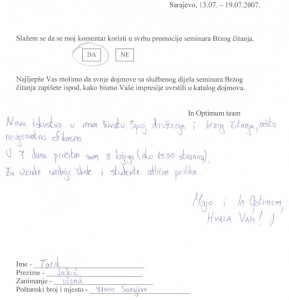 Sarajevo, 13.07. – 19.07.2007.
Slažem se da se moj komentar koristi u svrhu promocije seminara Brzog čitanja.
DA NE
Najljepše Vas molimo da svoje dojmove sa službenog dijela seminara Brzog
čitanja zapišete ispod, kako bismo Vaše impresije uvrstili u katalog dojmova.
In Optimum team
Novo iskustvo u mom životu. Spoj druženja i brzog čitanja, nešto
nevjerovatno efikasno.
U 7 dana pročitao sam 8 knjiga (oko 1500 stranica).
Za učenike srednje škole i studente odlična prilika.
Majo i In Optimum,
HVALA VAM! :)
Ime - Tarik
Prezime -
Zanimanje - učenik
Poštanski broj i mjesto - 71000 Sarajevo